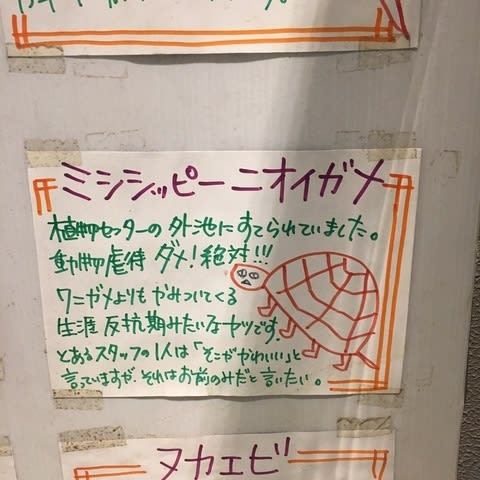 ミシシッピーニオイガメ
植物センターの外池にすてられていました。
動物虐待 ダメ!絶対!!!
ワニガメよりもかみついてくる
生涯反抗期みたいなヤツです。
とあるスタッフの1人は「そこがかわいい」と
言っていますが、それはお前のみだと言いたい。
ヌカエビ